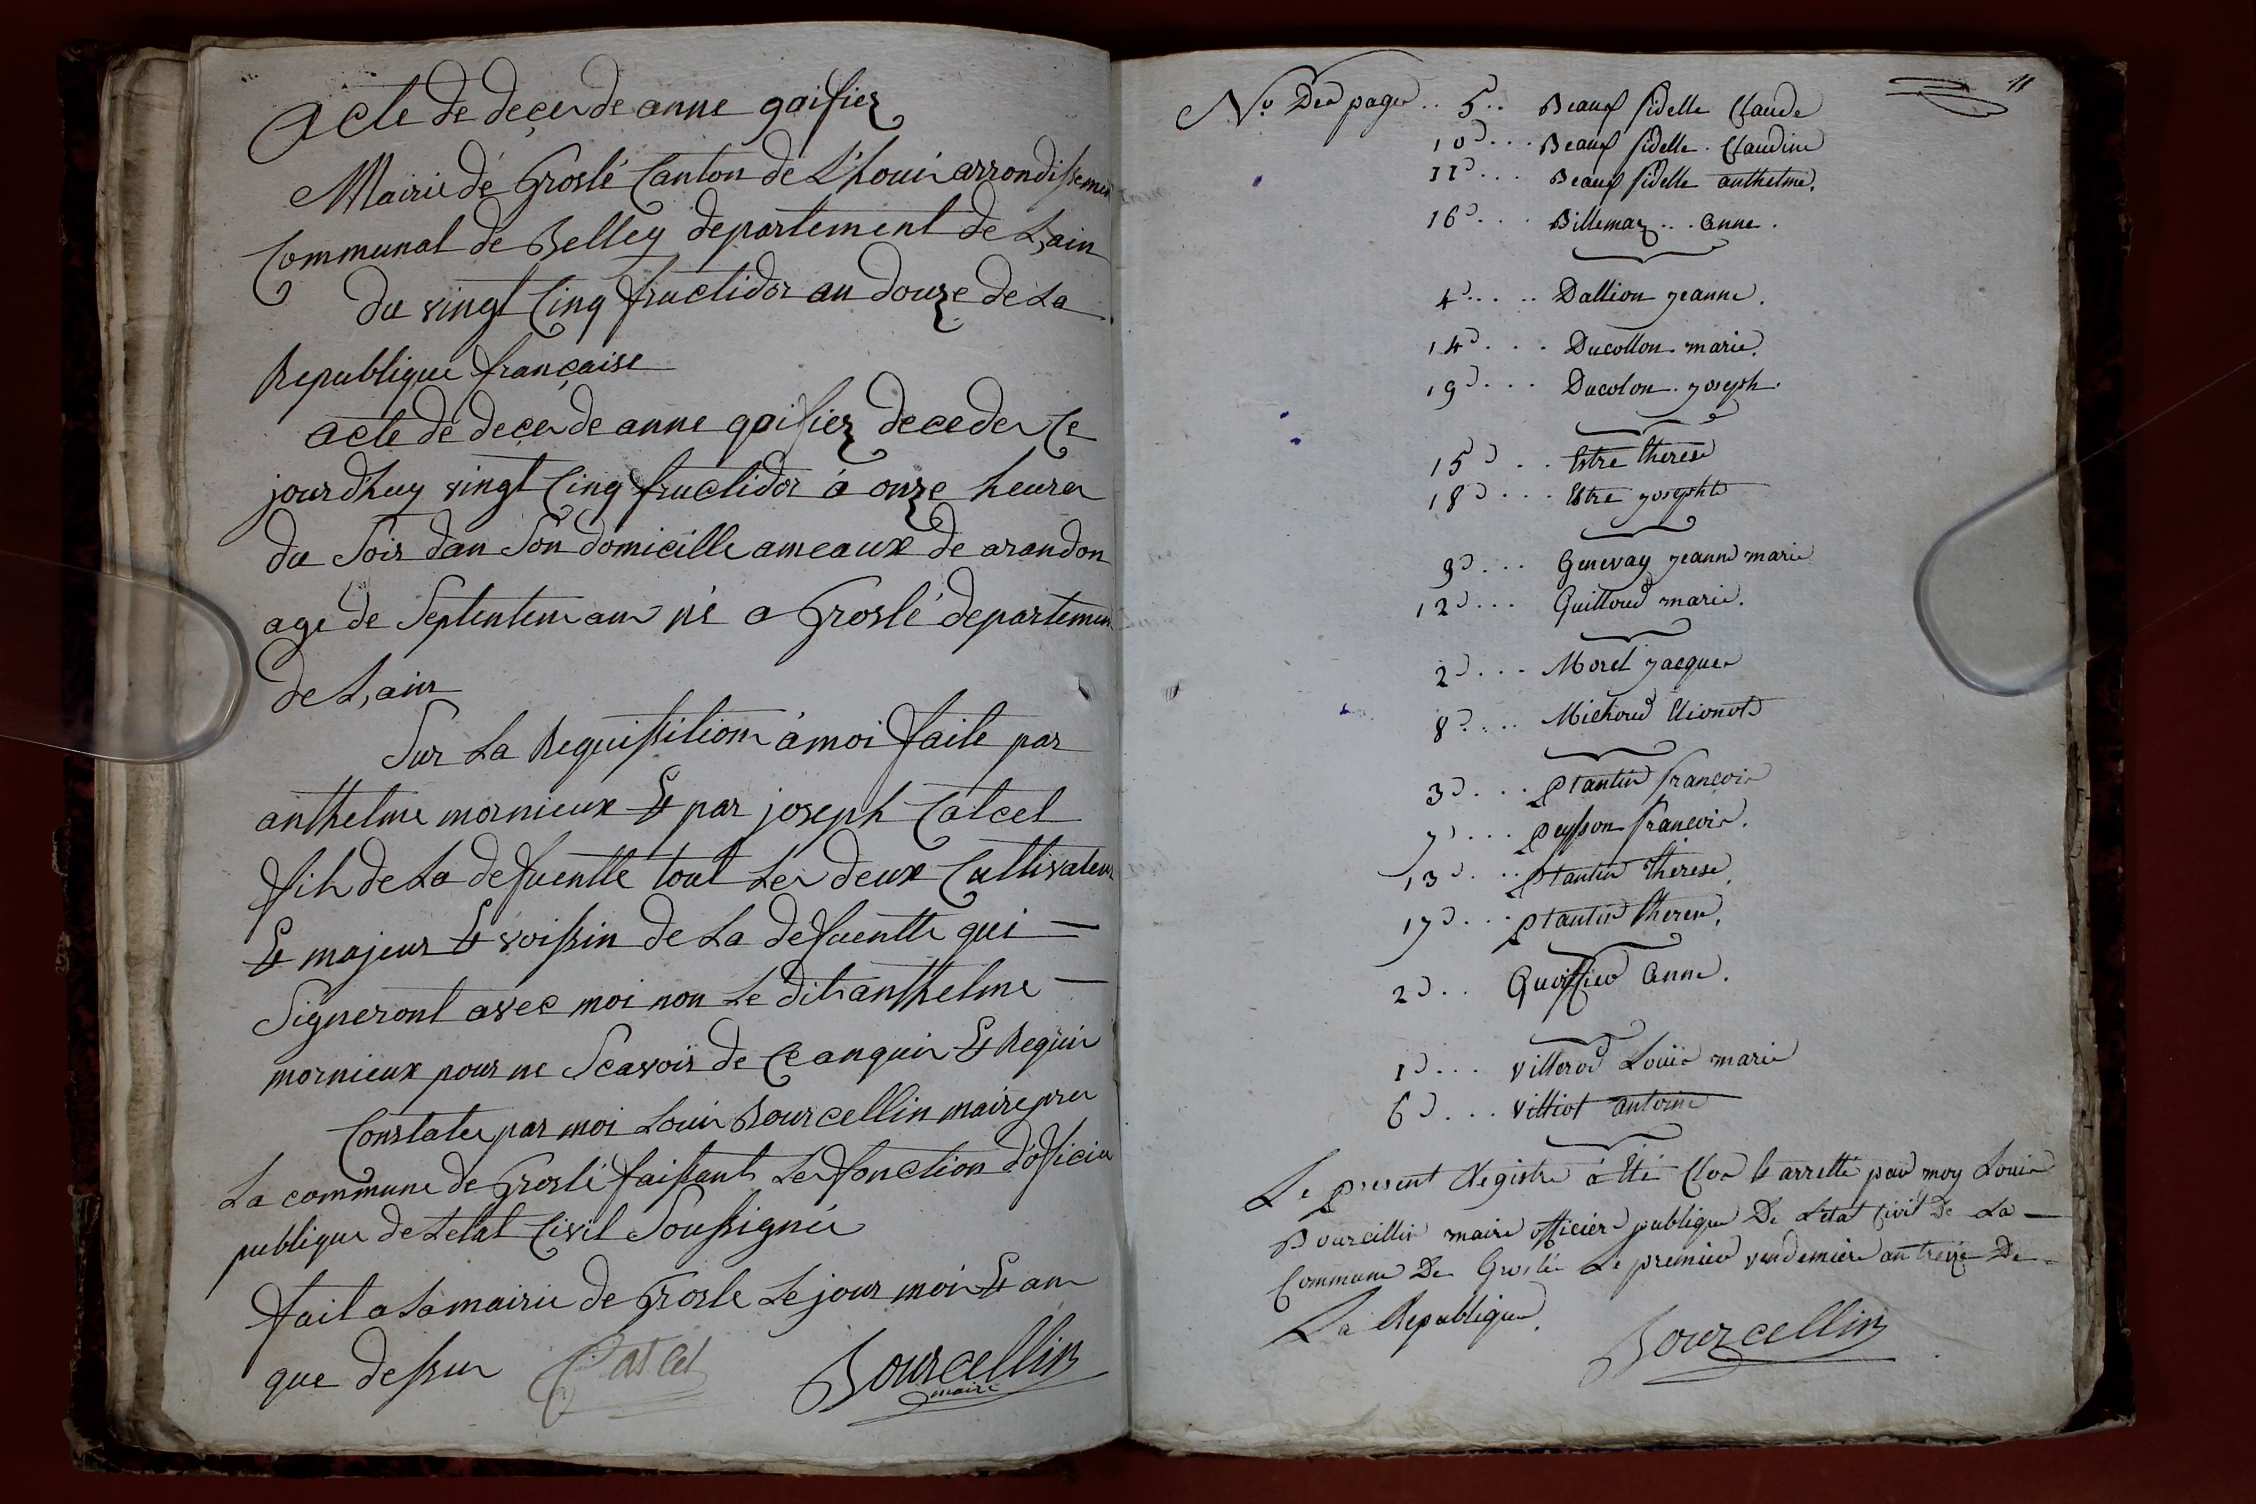 Acte de deces de anne goifiez
Mairie de Groslé Canton de L'houis arrondissemen
Communal de Belley departement de L,ain
du vingt Cinq fructidor an douze de La
Republique française
acte de deces de anne goifiez decedes Ce
jourdhuy vingt Cinq fructidor à onze heures
du Soir dan Son domicille ameaux de arandon
age de Septentem ans né a Groslé departemen
de L,ain
Sur La Requissitiom à moi faite par
anthelme mornieux & par joseph Catcel
fils de La defuentte tout Les deux Cultivateur
& majeur & voissin de La defuentte qui
Signeront avec moi non Le dit anthelme
mornieux pour ne Scavoir de Ce anquis & Requis
Constates par moi Louis Bourcellin maire pres
La commune de Groslé faissant Les fonction d'oficies
publique de Letat Civil Soussignés
fait a La mairie de Grosle Le jour mois & an
que dessus Catcel Bourcellin
maire
11
No Des pages .. 5 .. Beauf fidelle Claude
10 ... Beauf fidelle . Claudine
11 ... Beauf fidelle anthelme.
16 ... Billemaz ... anne .
4 .... Dallion jeanne .
14 ... Ducollon marie.
19 ... Ducolon . joseph .
15 .. Estre therese
18 ... Estre josephte
9 ... Genevay jeanne marie
12 ... Guilloud marie.
2 ... Morel jacques
8 .... Michoud
3 ... Plantin francois
7 ... peysson francois.
13 ... Plantin therese.
17 ... Plantin therese.
2 .. Anne.
1 ... villerod Louis marie
6 ... villiot antoine
Le present Registre à été Clos & arretté par moy Louis
Bourcillin maire officier publique De Letat Civil De La
Commune De Groslée Le premier vendemiere an treize De
La Republique.
Bourcellin